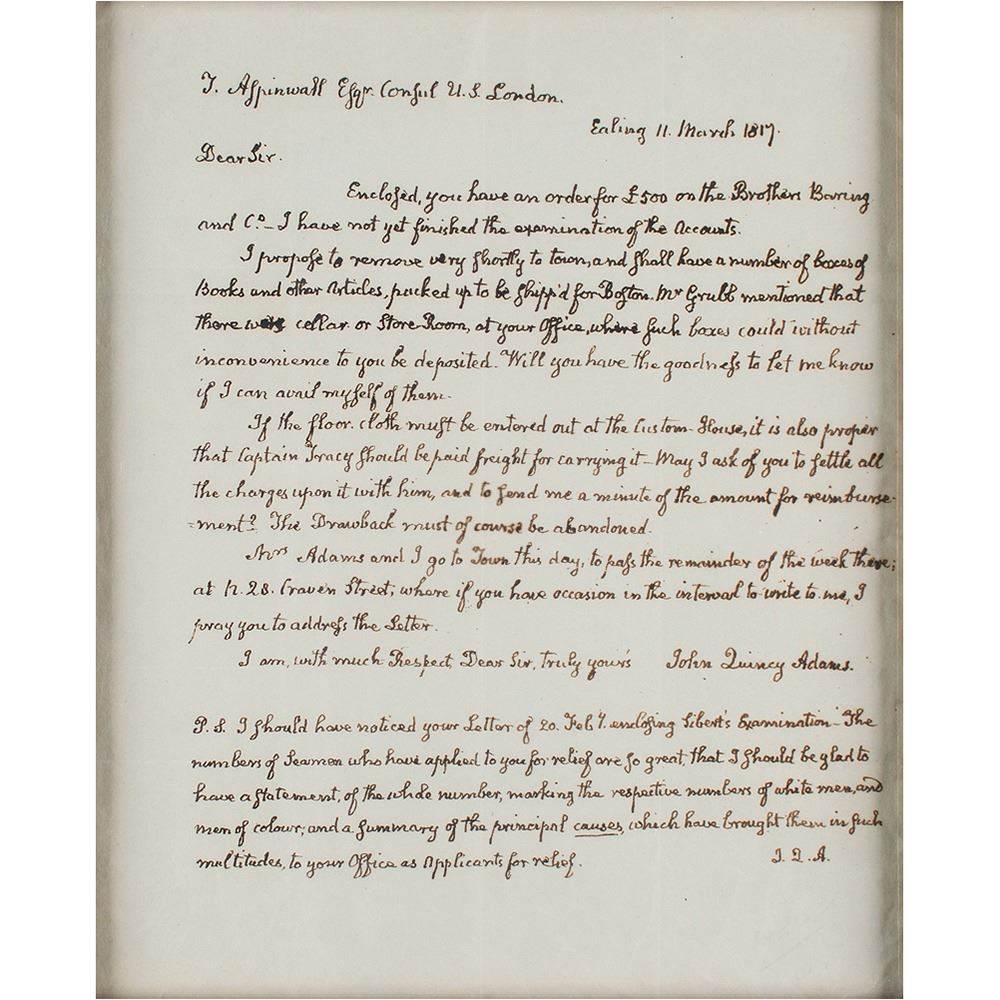 T. Aspinwall Esqr. Consul U.S. London.
Ealing 11. March 1817.
Dear Sir.
Enclosed, you have an order for £500 on the Brothers Baring
and Co. – I have not yet finished the examination of the Accounts.
I propose to remove very shortly to town, and shall have a number of boxes of
Books and other Articles, packed up to be shipp'd for Boston. Mr Grubb mentioned that
there was cellar or Store-Room, at your Office, where such boxes could without
inconvenience to you be deposited. Will you have the goodness to let me know
if I can avail myself of them.
If the floor-cloth must be entered out at the Custom-House, it is also proper
that Captain Tracy should be paid freight for carrying it – May I ask of you to settle all
the charges upon it with him, and to send me a minute of the amount for reimburse-
=ment? The Drawback must of course be abandoned.
Mrs Adams and I go to Town this day, to pass the remainder of the week there;
at N. 28. Craven Street; where if you have occasion in the interval to write to me, I
pray you to address the Letter.
I am, with much Respect, Dear Sir, truly your's John Quincy Adams.
P.S. I should have noticed your Letter of 20. Feby. enclosing Sibert's Examination – The
numbers of Seamen who have applied to you for relief are so great, that I should be glad to
have a statement, of the whole number, marking the respective numbers of white men, and
men of colour; and a summary of the principal causes, which have brought them in such
multitudes, to your Office as Applicants for relief. J.Q.A.